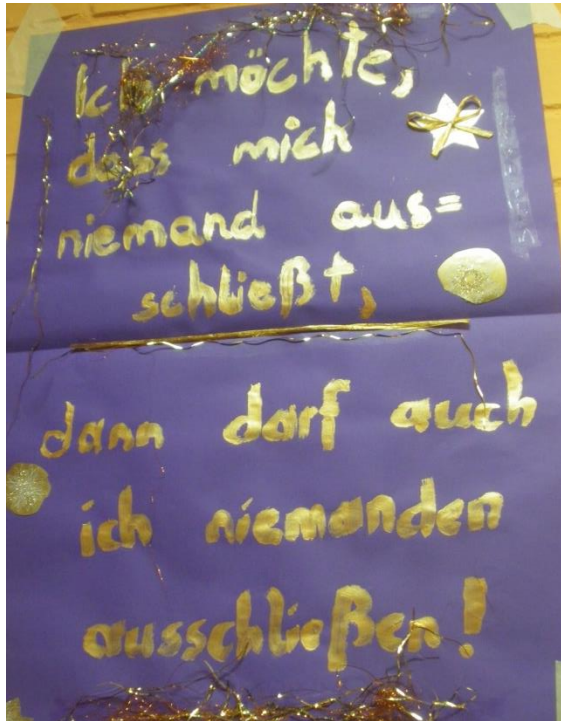 Ich möchte,
dass mich
niemand aus=
schließt,
dann darf auch
ich niemanden
ausschließen!